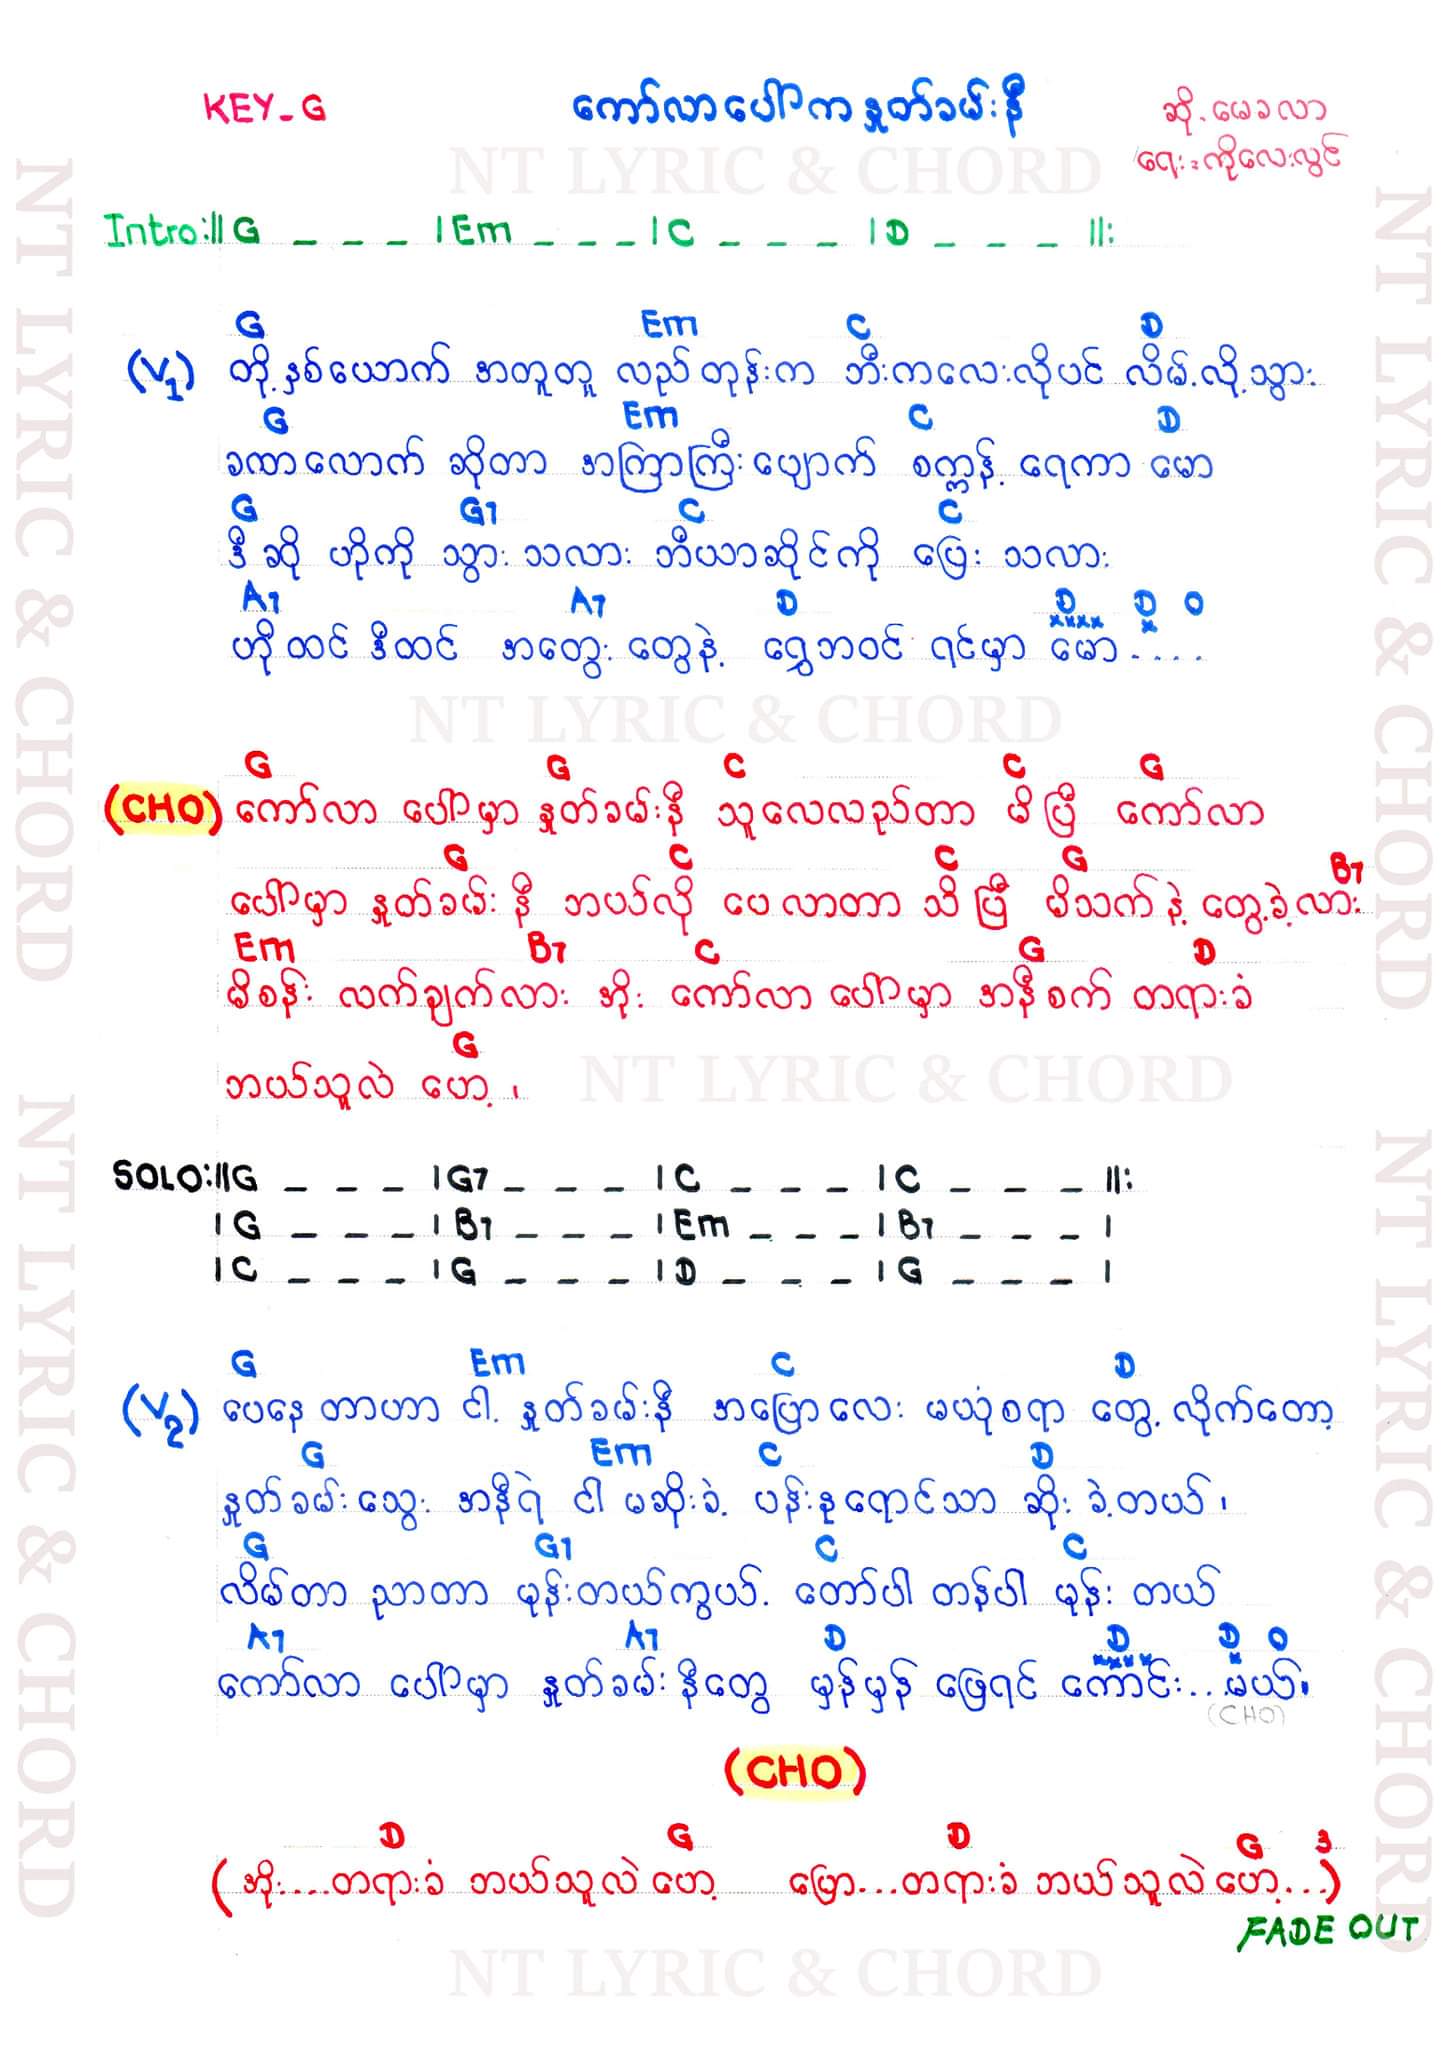 KEY-G
ကော်လာပေါ်က နှုတ်ခမ်းနီ
ဆို-မေခလာ
ရေး-ကိုလေးလွင်
NT LYRIC & CHORD
Intro:|| G _ _ _ | Em _ _ _ | C _ _ _ | D _ _ _ ||:
G Em C D
(V1) တို့နှစ်ယောက် အတူတူ လည်တုန်းက ဘီးကလေးလိုပင် လိမ့်လို့သွား
G Em C D
ခဏလောက် ဆိုတာ အကြာကြီးပျောက် စက္ကန့် ရေကာ မော
G G7 C C
ဒီဆို ဟိုကို သွားသလား ဘီယာဆိုင်ကို ပြေးသလား
A7 A7 D D D O
ဟိုထင် ဒီထင် အတွေးတွေနဲ့ ရွှေဘဝင် ရင်မှာ မော....
NT LYRIC & CHORD
G G C C G
(CHO) ကော်လာ ပေါ်မှာ နှုတ်ခမ်းနီ သူလေလည်တာ မိပြီ ကော်လာ
G C C G B7
ပေါ်မှာ နှုတ်ခမ်းနီ ဘယ်လို ပေလာတာ သိပြီ မိသက်နဲ့ တွေ့ခဲ့လား
Em B7 C G D
မိစန်း လက်ချက်လား အိုး ကော်လာ ပေါ်မှာ အနီစက် တရားခံ
G
ဘယ်သူလဲ ဟေ့၊
NT LYRIC & CHORD
SOLO:|| G _ _ _ | G7 _ _ _ | C _ _ _ | C _ _ _ ||:
| G _ _ _ | B7 _ _ _ | Em _ _ _ | B7 _ _ _ |
| C _ _ _ | G _ _ _ | D _ _ _ | G _ _ _ |
G Em C D
(V2) ပေနေတာဟာ ငါ့ နှုတ်ခမ်းနီ အပြောလေး မယုံစရာ တွေ့လိုက်တော့
G Em C D
နှုတ်ခမ်းသွေး အနီရဲ ငါ မဆိုးခဲ့ ပန်းနုရောင်သာ ဆိုးခဲ့တယ်၊
G G7 C C
လိမ်တာ ညာတာ မုန်းတယ်ကွယ် တော်ပါ တန်ပါ မုန်းတယ်
A7 A7 D D D O
ကော်လာ ပေါ်မှာ နှုတ်ခမ်းနီတွေ မှန်မှန် ဖြေရင် ကောင်း...မယ်။
(CHO)
(CHO)
D G D G 3
(အိုး....တရားခံ ဘယ်သူလဲ ဟေ့ ပြော...တရားခံ ဘယ်သူလဲ ဟေ့...)
FADE OUT
NT LYRIC & CHORD
NT LYRIC & CHORD
NT LYRIC & CHORD
NT LYRIC & CHORD
NT LYRIC & CHORD